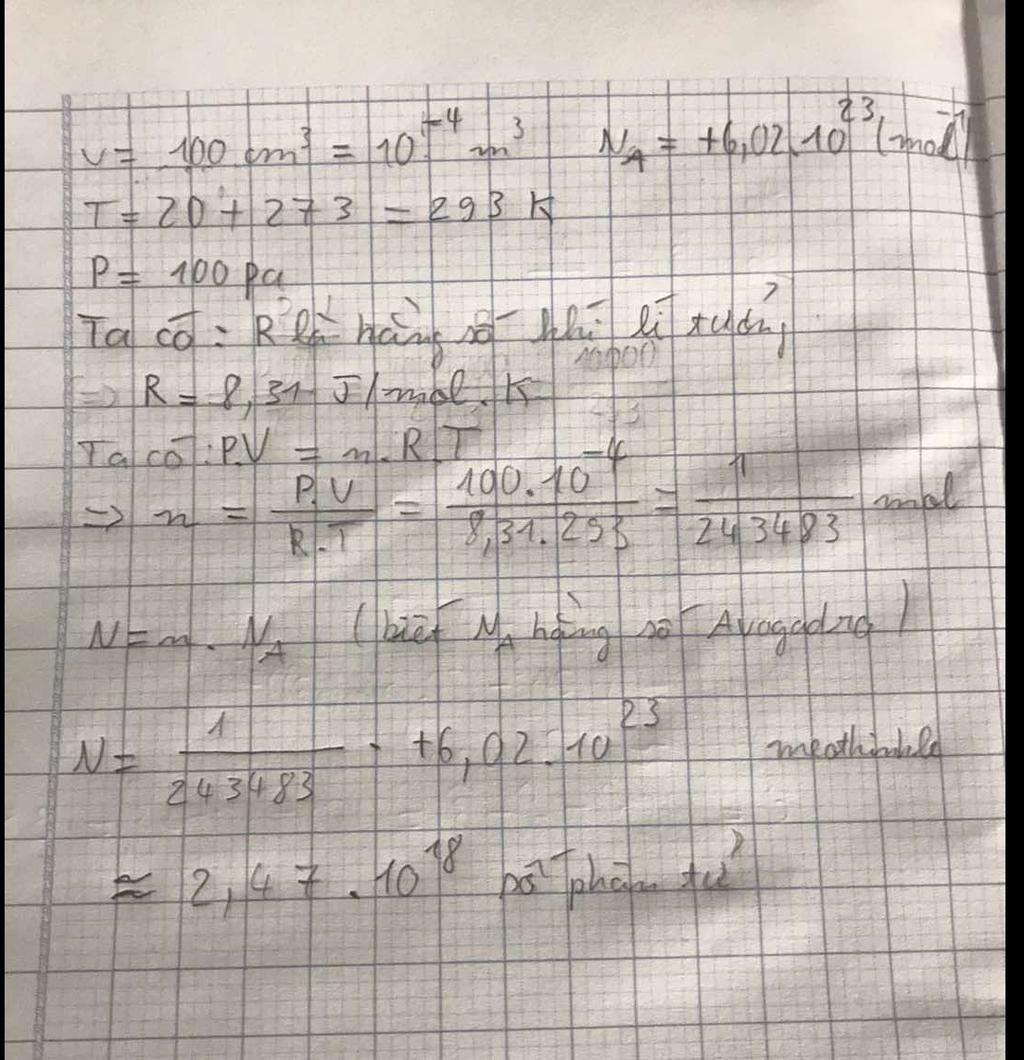 V = 100 cm³ = 10⁻⁴ m³ N_A = +6,02.10²³ (mol⁻¹)
T = 20 + 273 = 293 K
P = 100 pa
Ta có : R là hằng số khí lí tưởng
10000
=> R = 8,31 J/mol.K
Ta có : P.V = n.R.T
=> n = P.V / R.T = 100.10⁻⁴ / 8,31.293 = 1 / 243483 mol
N = n . N_A (biết N_A hằng số Avogadro)
N = 1 / 243483 . +6,02.10²³
≈ 2,47.10¹⁸ số phân tử